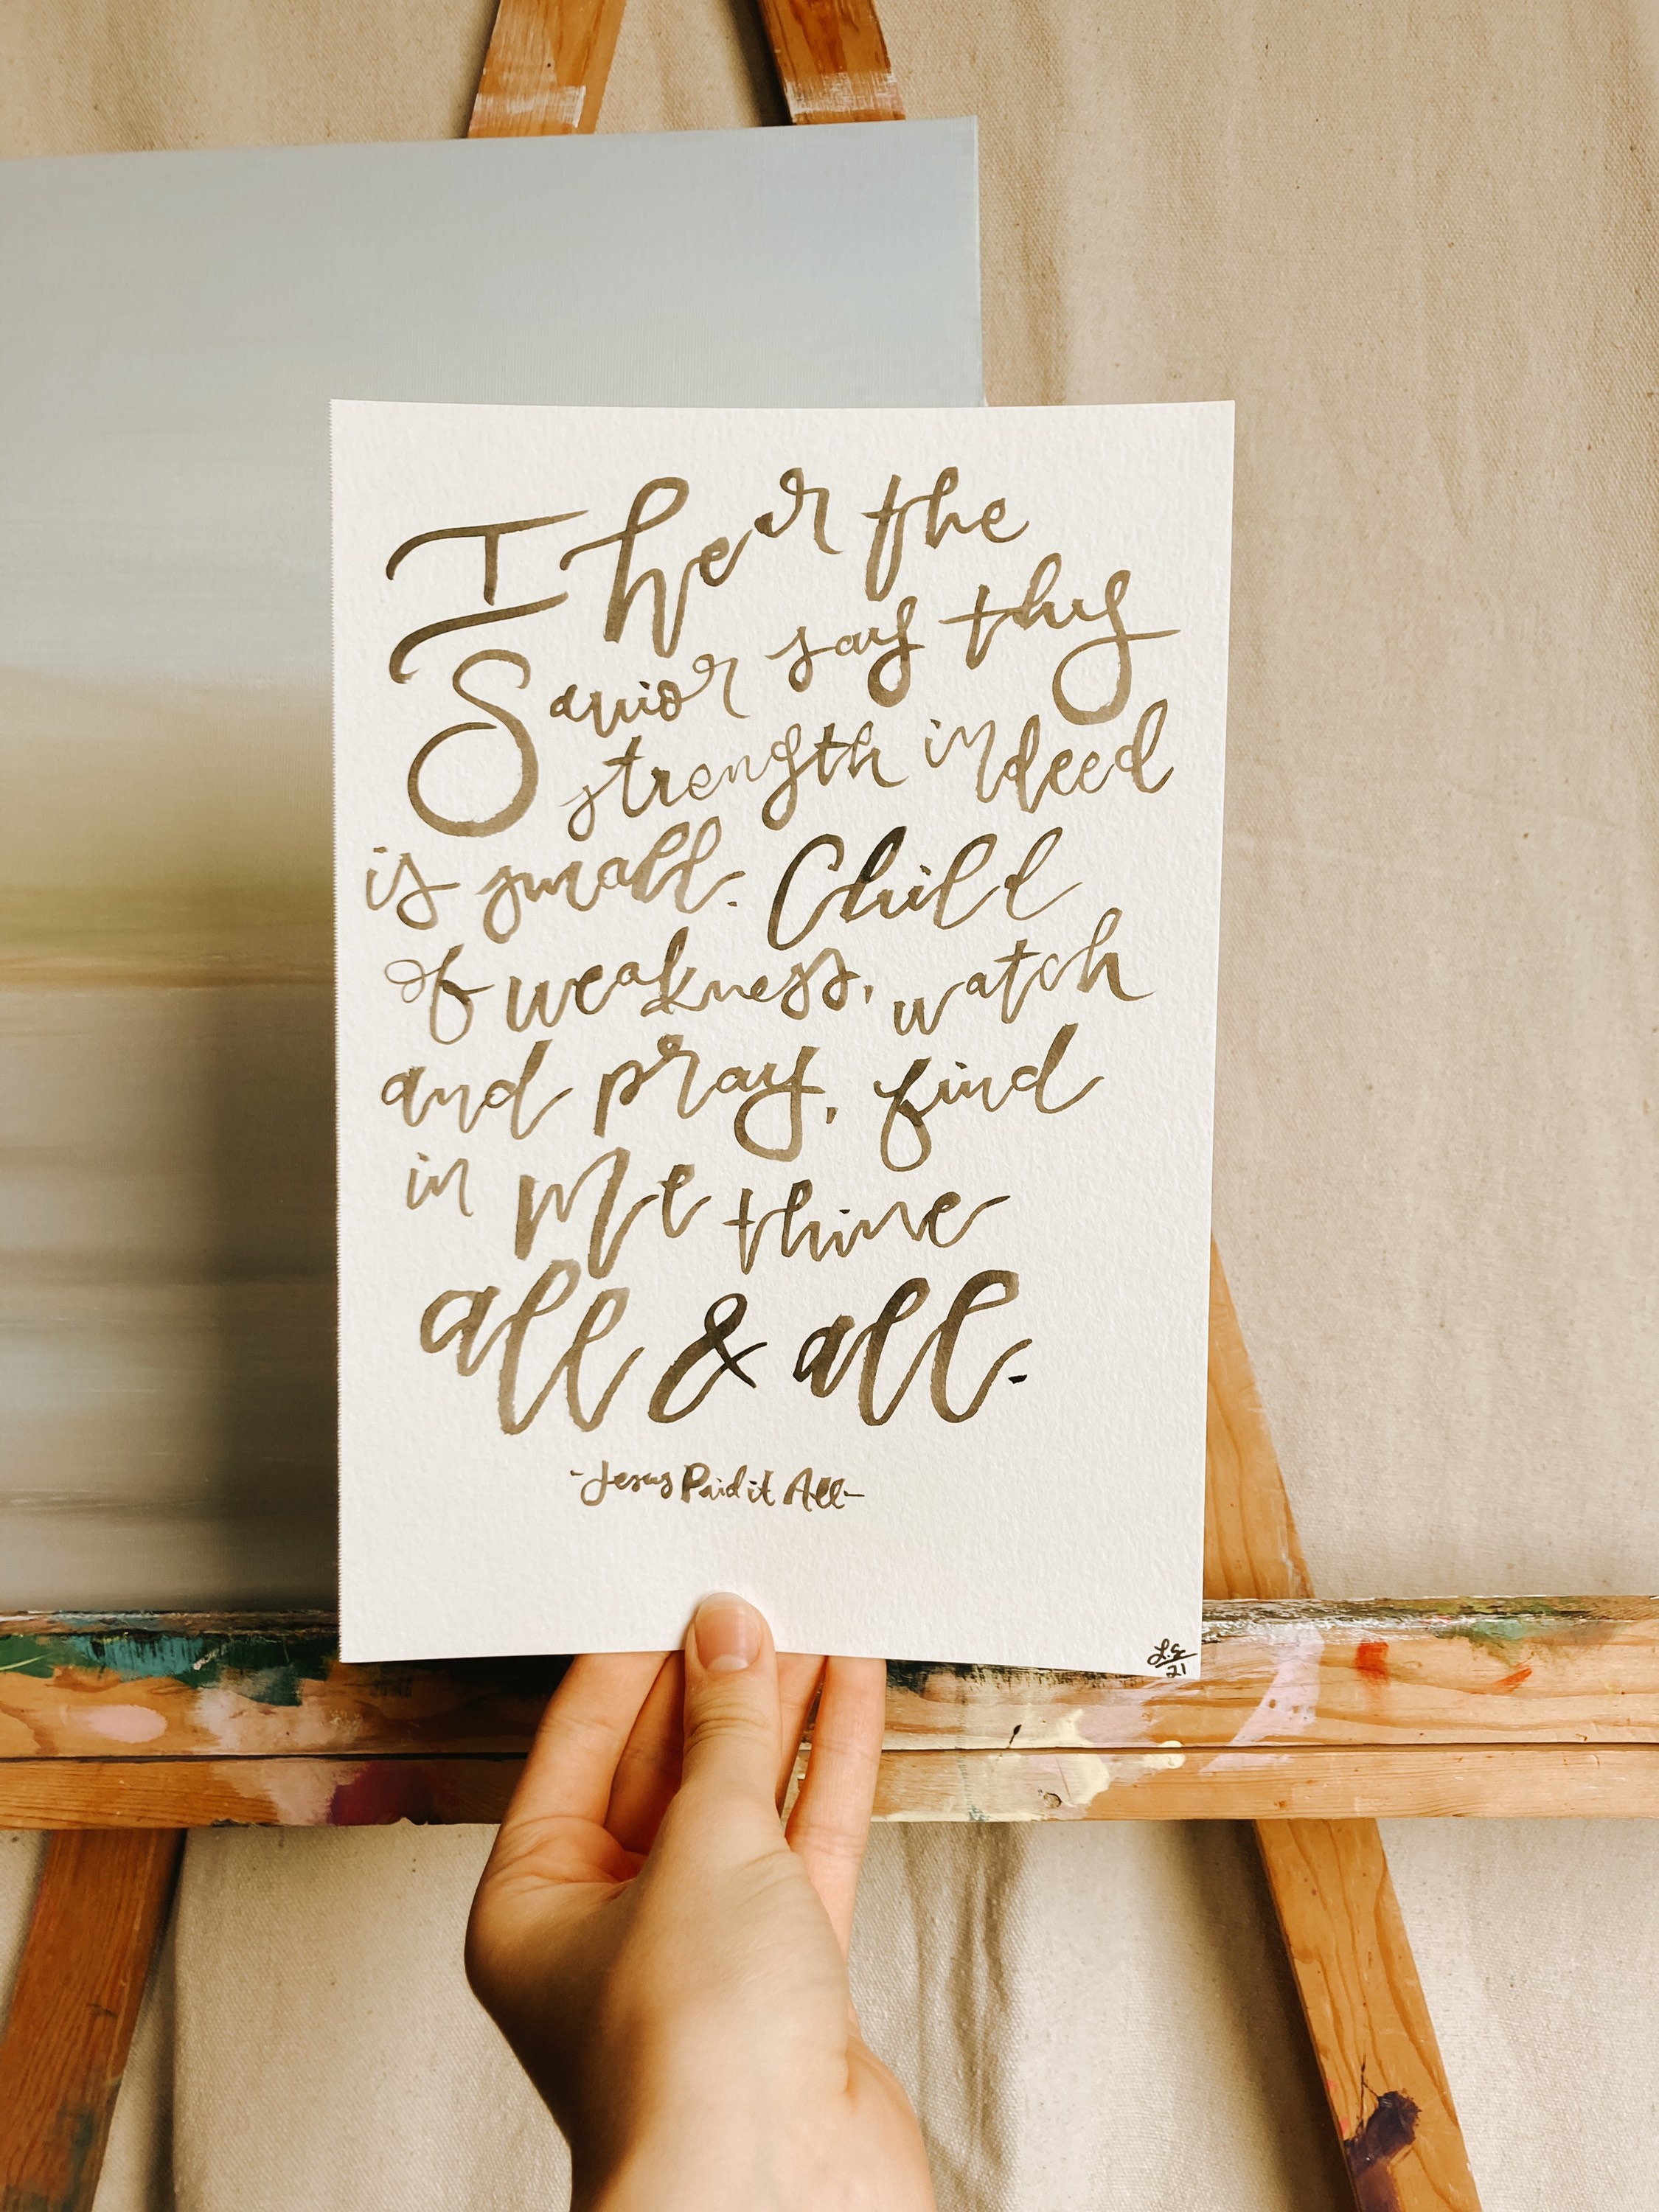 I hear the
Savior say thy
strength indeed
is small. Child
of weakness, watch
and pray, find
in me thine
all & all.
-Jesus Paid it All-
L.S
21